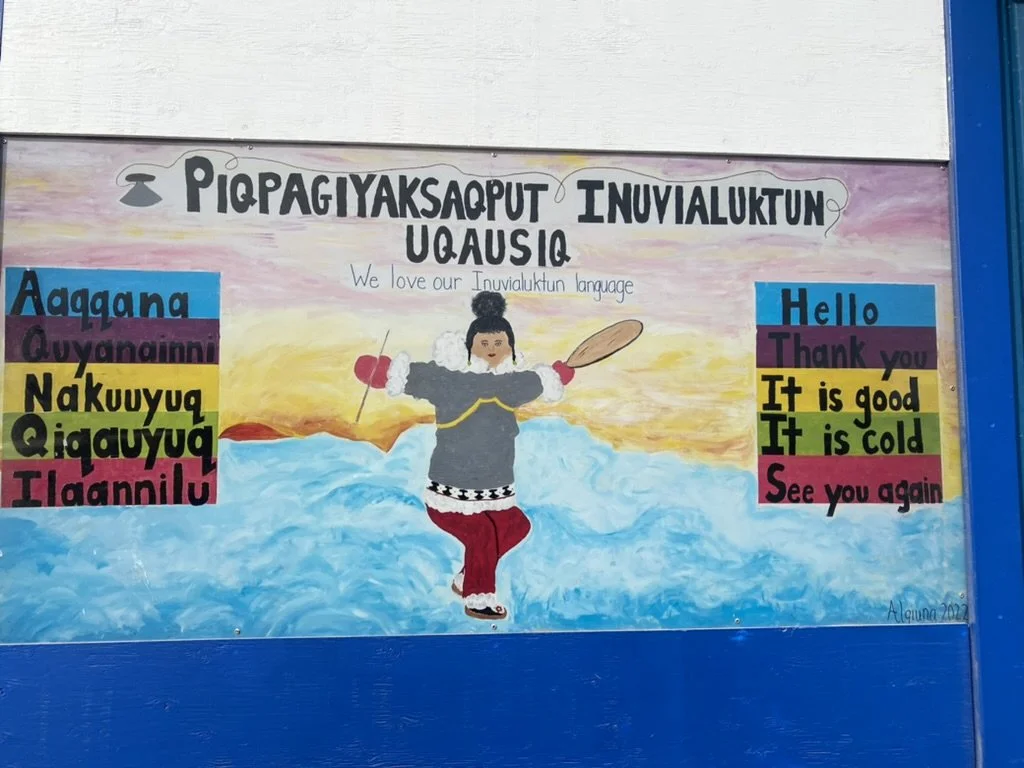 PIQPAGIYAKSAQPUT INUVIALUKTUN
UQAUSIQ
We love our Inuvialuktun language
Aaqqana
Quyanainni
Nakuuyuq
Qiqauyuq
Ilaannilu
Hello
Thank you
It is good
It is cold
See you again
2022